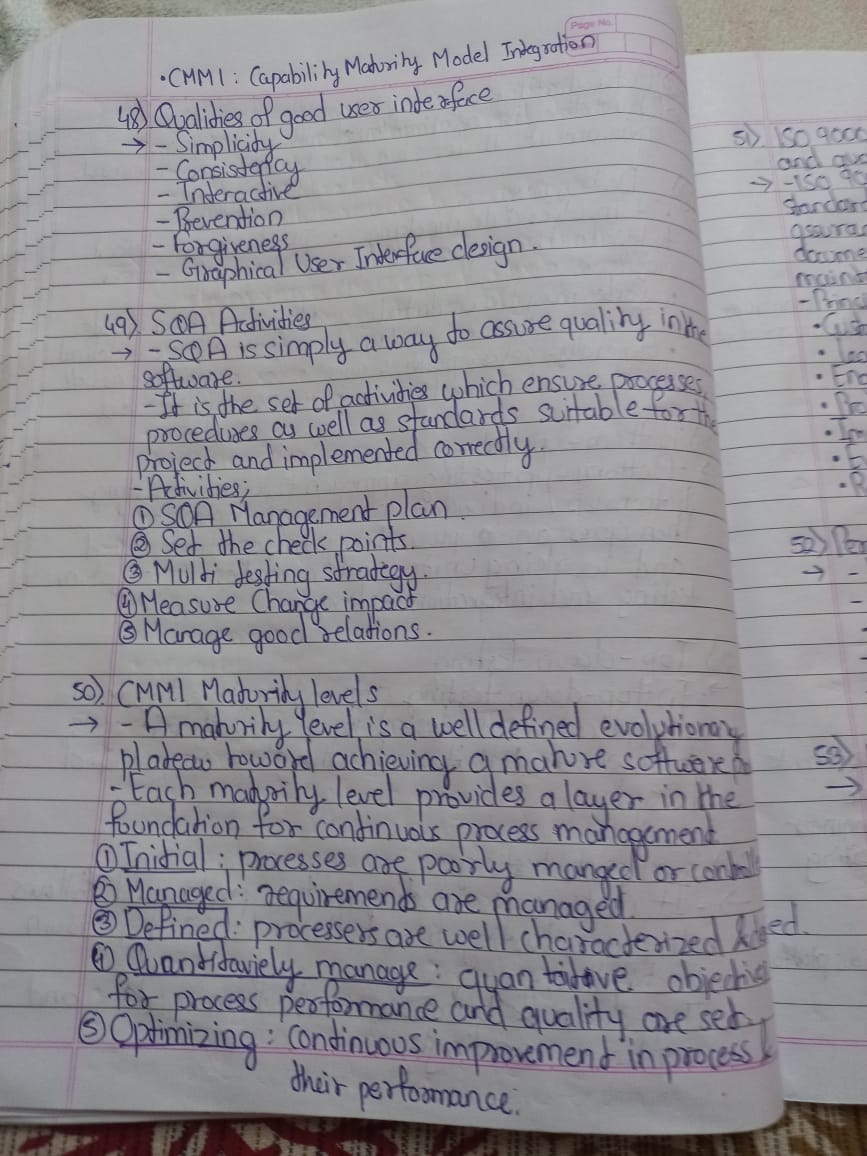 Page No.
• CMMI : Capability Maturity Model Integration
48) Qualities of good user interface
→ - Simplicity
- Consistency
- Interactive
- Prevention
- Forgiveness
- Graphical User Interface design.
49) SQA Activities
→ - SQA is simply a way to assure quality in the
software.
- It is the set of activities which ensure processes,
procedures as well as standards suitable for the
project and implemented correctly.
- Activities;
① SQA Management plan
② Set the check points.
③ Multi testing strategy.
④ Measure Change impact
⑤ Manage good relations.
50) CMMI Maturity levels
→ - A maturity level is a well defined evolutionary
plateau toward achieving a mature software
- Each maturity level provides a layer in the
foundation for continuous process management
① Initial : processes are poorly manged or
② Managed : requirements are managed.
③ Defined : processers are well characterized &
④ Quantitaviely manage : quantitative
for process performance and quality are set.
⑤ Optimizing : continuous improvement in process &
their performance.
51) ISO 9000
and
→ - ISO
52)
→ -
-
-
53)
→